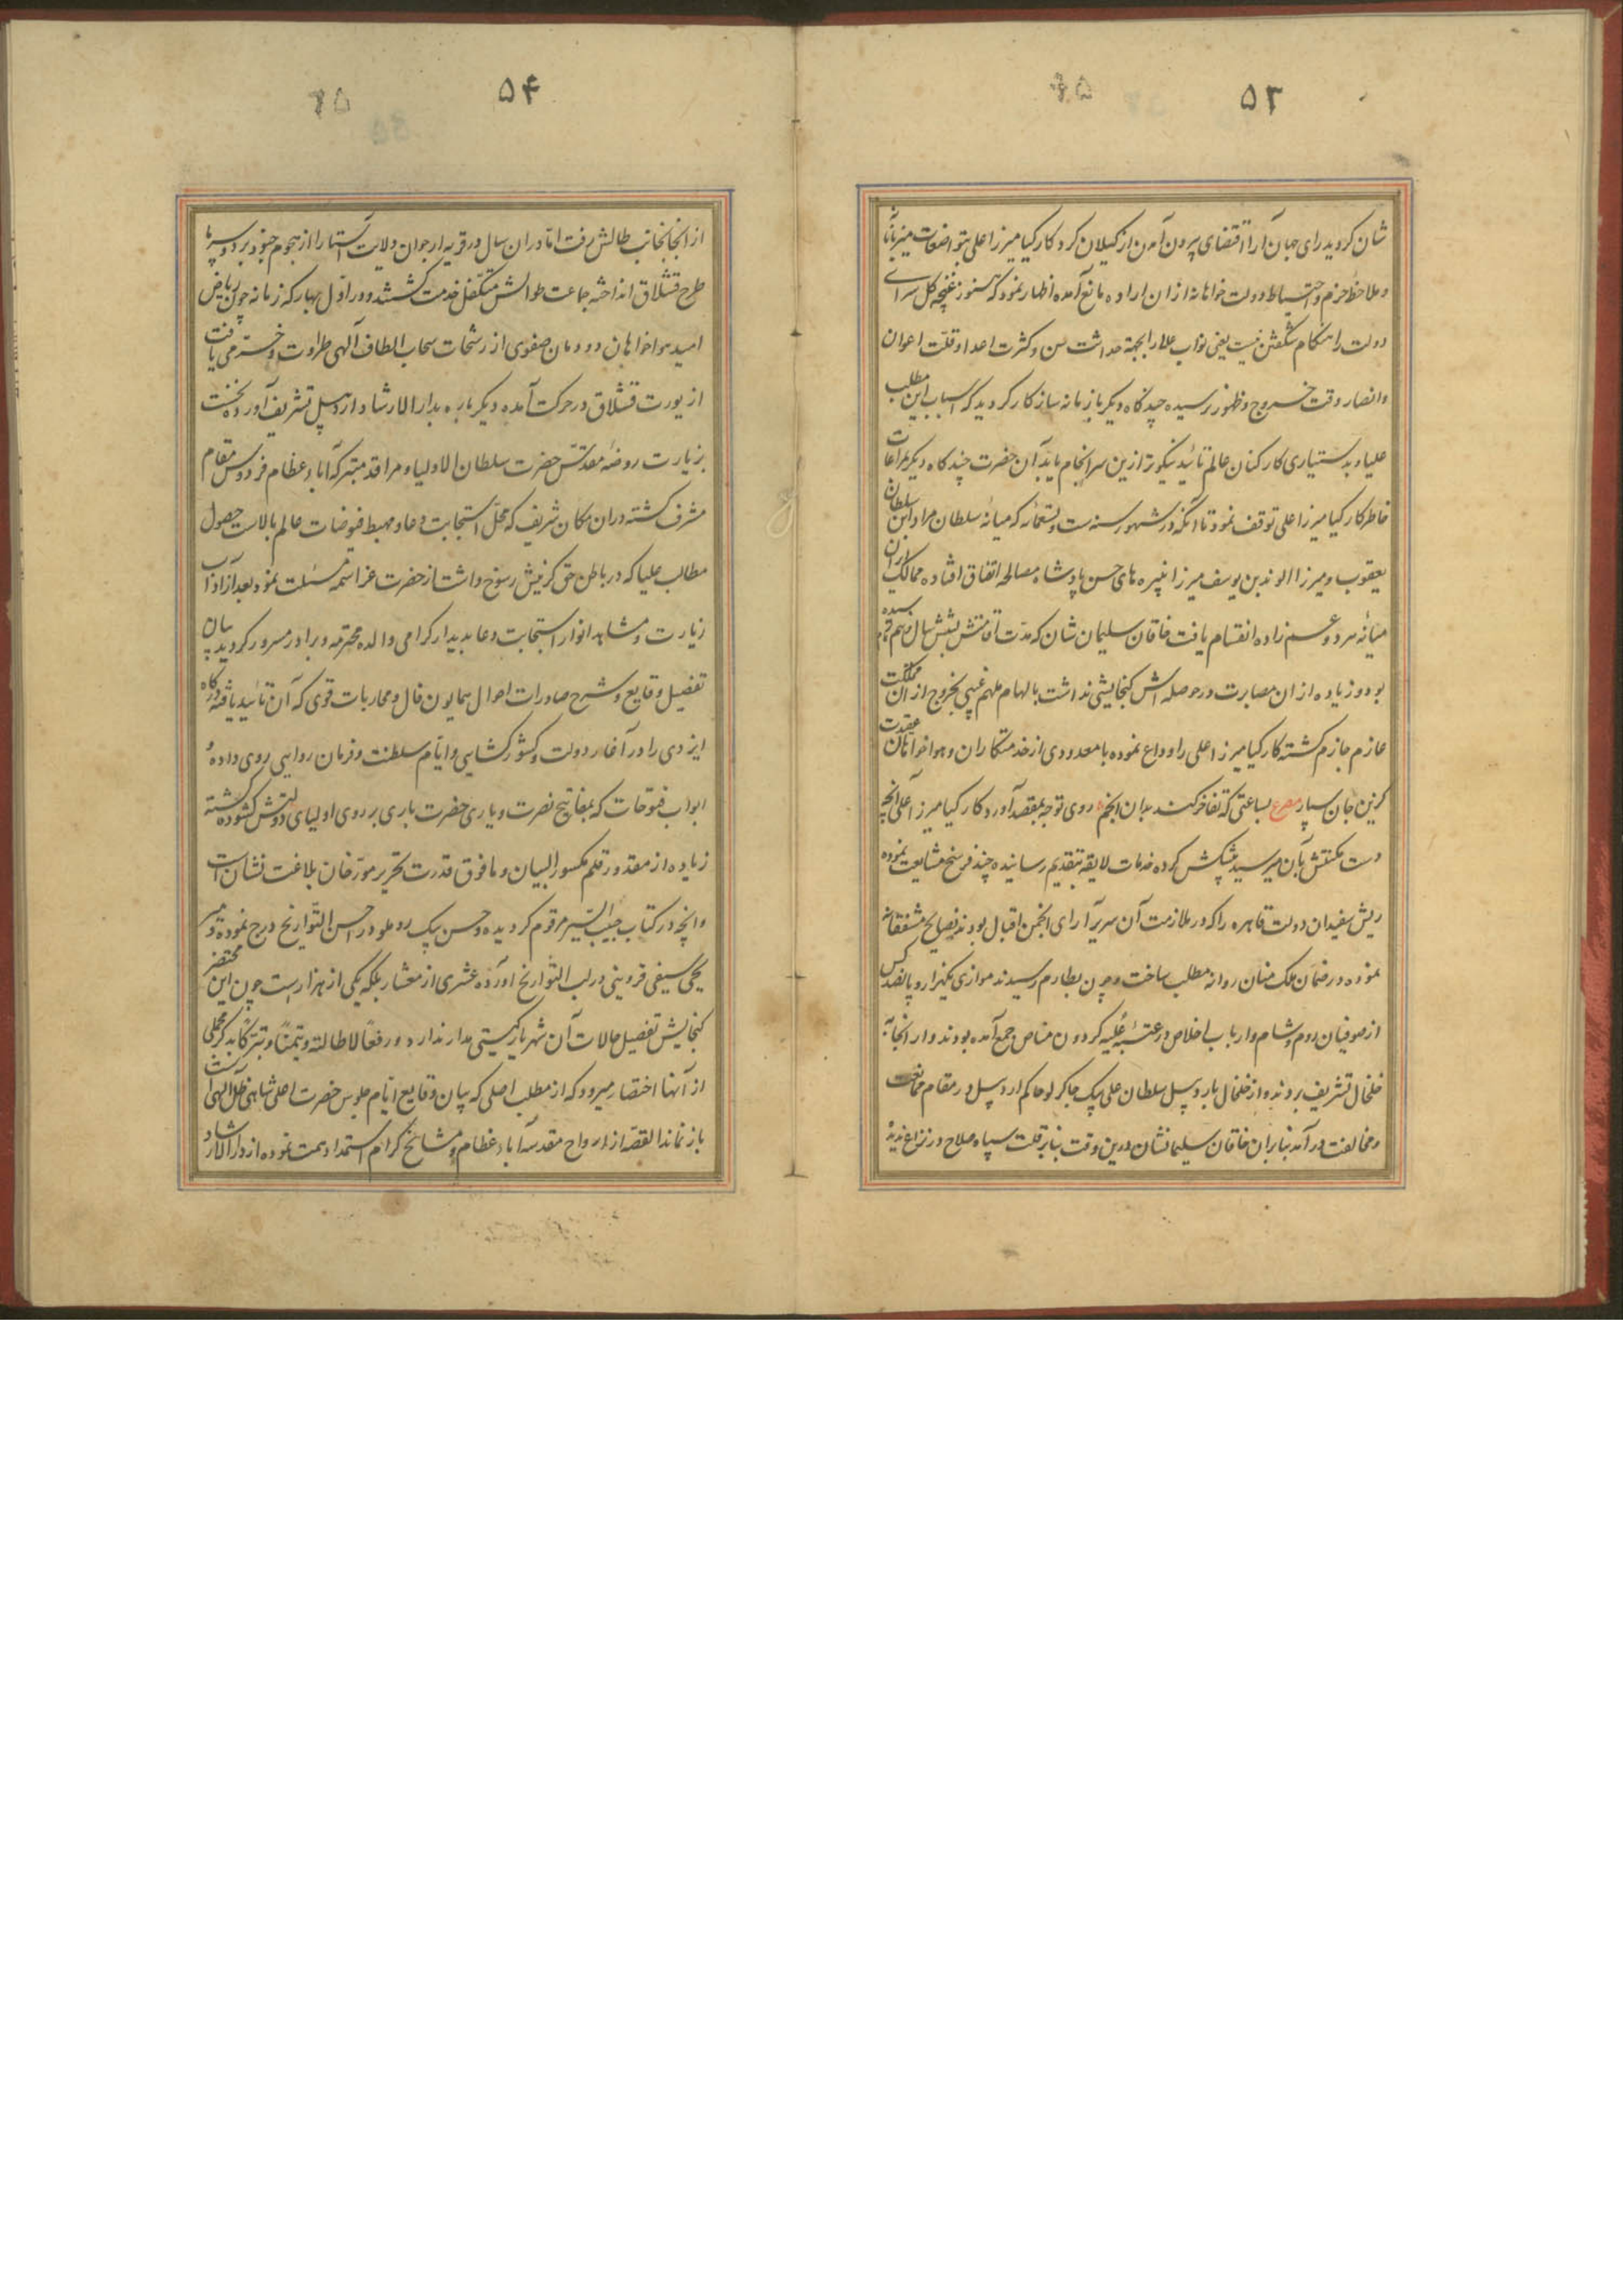 ۵۳
شان کردید رای جهان آرا اقتضای بیرون آمدن از کیلان کرد کارکیا میرزا علی بتواضعات میزبانا
و ملاحظ حزم و احتیاط دولت خواهانه از ان اراده مانع آمده اظهار نمود که هنوز غنچه کل سرای
دولت را هنکام شکفتن نیست یعنی نواب علا را بجهة حداثت سن و کثرت اعدا و قلت اعوان
و انصار وقت خروج و ظهور نرسیده چند کاه دیکر با زمانه ساز کار کردید که اسباب این مطلب
علیا و بدستیاری کارکنان عالم تائید نیکوتر ازین سرانجام یابد آن حضرت چند کاه دیکر مراعات
خاطر کارکیا میرزا علی توقف نمود تا آنکه در شهور سنه ست و تسعمائه که میانه سلطان مراد ابن سلطان
یعقوب و میرزا الوند بن یوسف میرزا نبیره های حسن پادشاه مصالحه اتفاق افتاده ممالک ایران
میانه هر دو عم زاده انقسام یافت خاقان سلیمان شان که مدت اقامتش بشش سال رسیده
بود و زیاده از ان مصابرت در حوصله اش کنجایشی نداشت بالهام ملهم غیبی بخروج از ان مملکت
عازم جازم کشته کارکیا میرزا علی را وداع نموده با معدودی از خدمتکاران و هواخواهان عقیدت
کزین جان سپار مصرع بساعتی که تفاخر کند بدان انجم روی توجه بمقصد آورد کارکیا میرزا علی آنچه
دست مکنتش بآن میرسید پیشکش کرده خدمات لایقه بتقدیم رسانیده چند فرسخ مشایعت نموده
ریش سفیدان دولت قاهره را که در ملازمت آن سریر آرای انجمن اقبال بودند نصایح مشفقانه
نموده در ضمان ملک منان روانه مطلب ساخت و چون بطارم رسیدند موازی یکهزار و پانصد کس
از صوفیان روم و شام و ارباب اخلاص در عتبه علیه کردون مناص جمع آمده بودند و از انجا به
خلخال تشریف بردند و از خلخال باردبیل سلطان علی بیک جاکرلو حاکم اردبیل در مقام ممانعت
و مخالفت در آمد بنابران خاقان سلیمانشان درین وقت بنابر قلت سپاه صلاح در نزاع ندیده
۵۴
از انجا بجانب طالش رفت اما دران سال در قریه ارجوان ولایت آستارا از هجوم جنود برد و سرما
طرح قشلاق انداخته جماعت طوالش متکفل خدمت کشتند و در اول بهار که زمانه چون ریاض
امید هواخواهان دودمان صفوی از رشحات سحاب الطاف آلهی طراوت و خرمی یافت
از یورت قشلاق در حرکت آمده دیکر باره بدار الارشاد اردبیل تشریف آورده نخست
بزیارت روضه مقدس حضرت سلطان الاولیا و مراقد متبرکه آباء عظام فردوس مقام
مشرف کشته دران مکان شریف که محل استجابت دعا و مهبط فیوضات عالم بالاست حصول
مطالب علیا که در باطن حق کزینش رسوخ داشت از حضرت عز اسمه مسئلت نمود بعد از آداب
زیارت و مشاهد انوار استجابت دعا بدیدار کرامی والده محترمه و برادر مسرور کردید بیان
تفصیل وقایع و شرح صادرات احوال همایون فال و محاربات قوی که آن تائید یافته درکاه
ایزدی را در آغاز دولت و کشورکشایی و ایام سلطنت و فرمان روایی روی داده و
ابواب فتوحات که بمفاتیح نصرت و یاری حضرت باری بر روی اولیای دولتش کشوده کشته
زیاده از مقدور قلم مکسور البیان و مافوق قدرت تحریر مورخان بلاغت نشان است
و انچه در کتاب حبیب السیر مرقوم کردیده و حسن بیک روملو در احسن التواریخ درج نموده و میر
یحیی سیفی قزوینی در لب التواریخ آورده عشری از معشار بلکه یکی از هزار است چون این مختصر
کنجایش تفصیل حالات آن شهریار کیتی مدار ندارد و رفعا لاطالته و تیمنا و تبرکا بذکر مجملی
از آنها اختصار میرود که از مطلب اصلی که بیان وقایع ایام جلوس حضرت اعلی شاهی ظل الهی است
باز نماند القصه از ارواح مقدسه آباء عظام و مشایخ کرام استمداد همت نموده از دار الارشاد